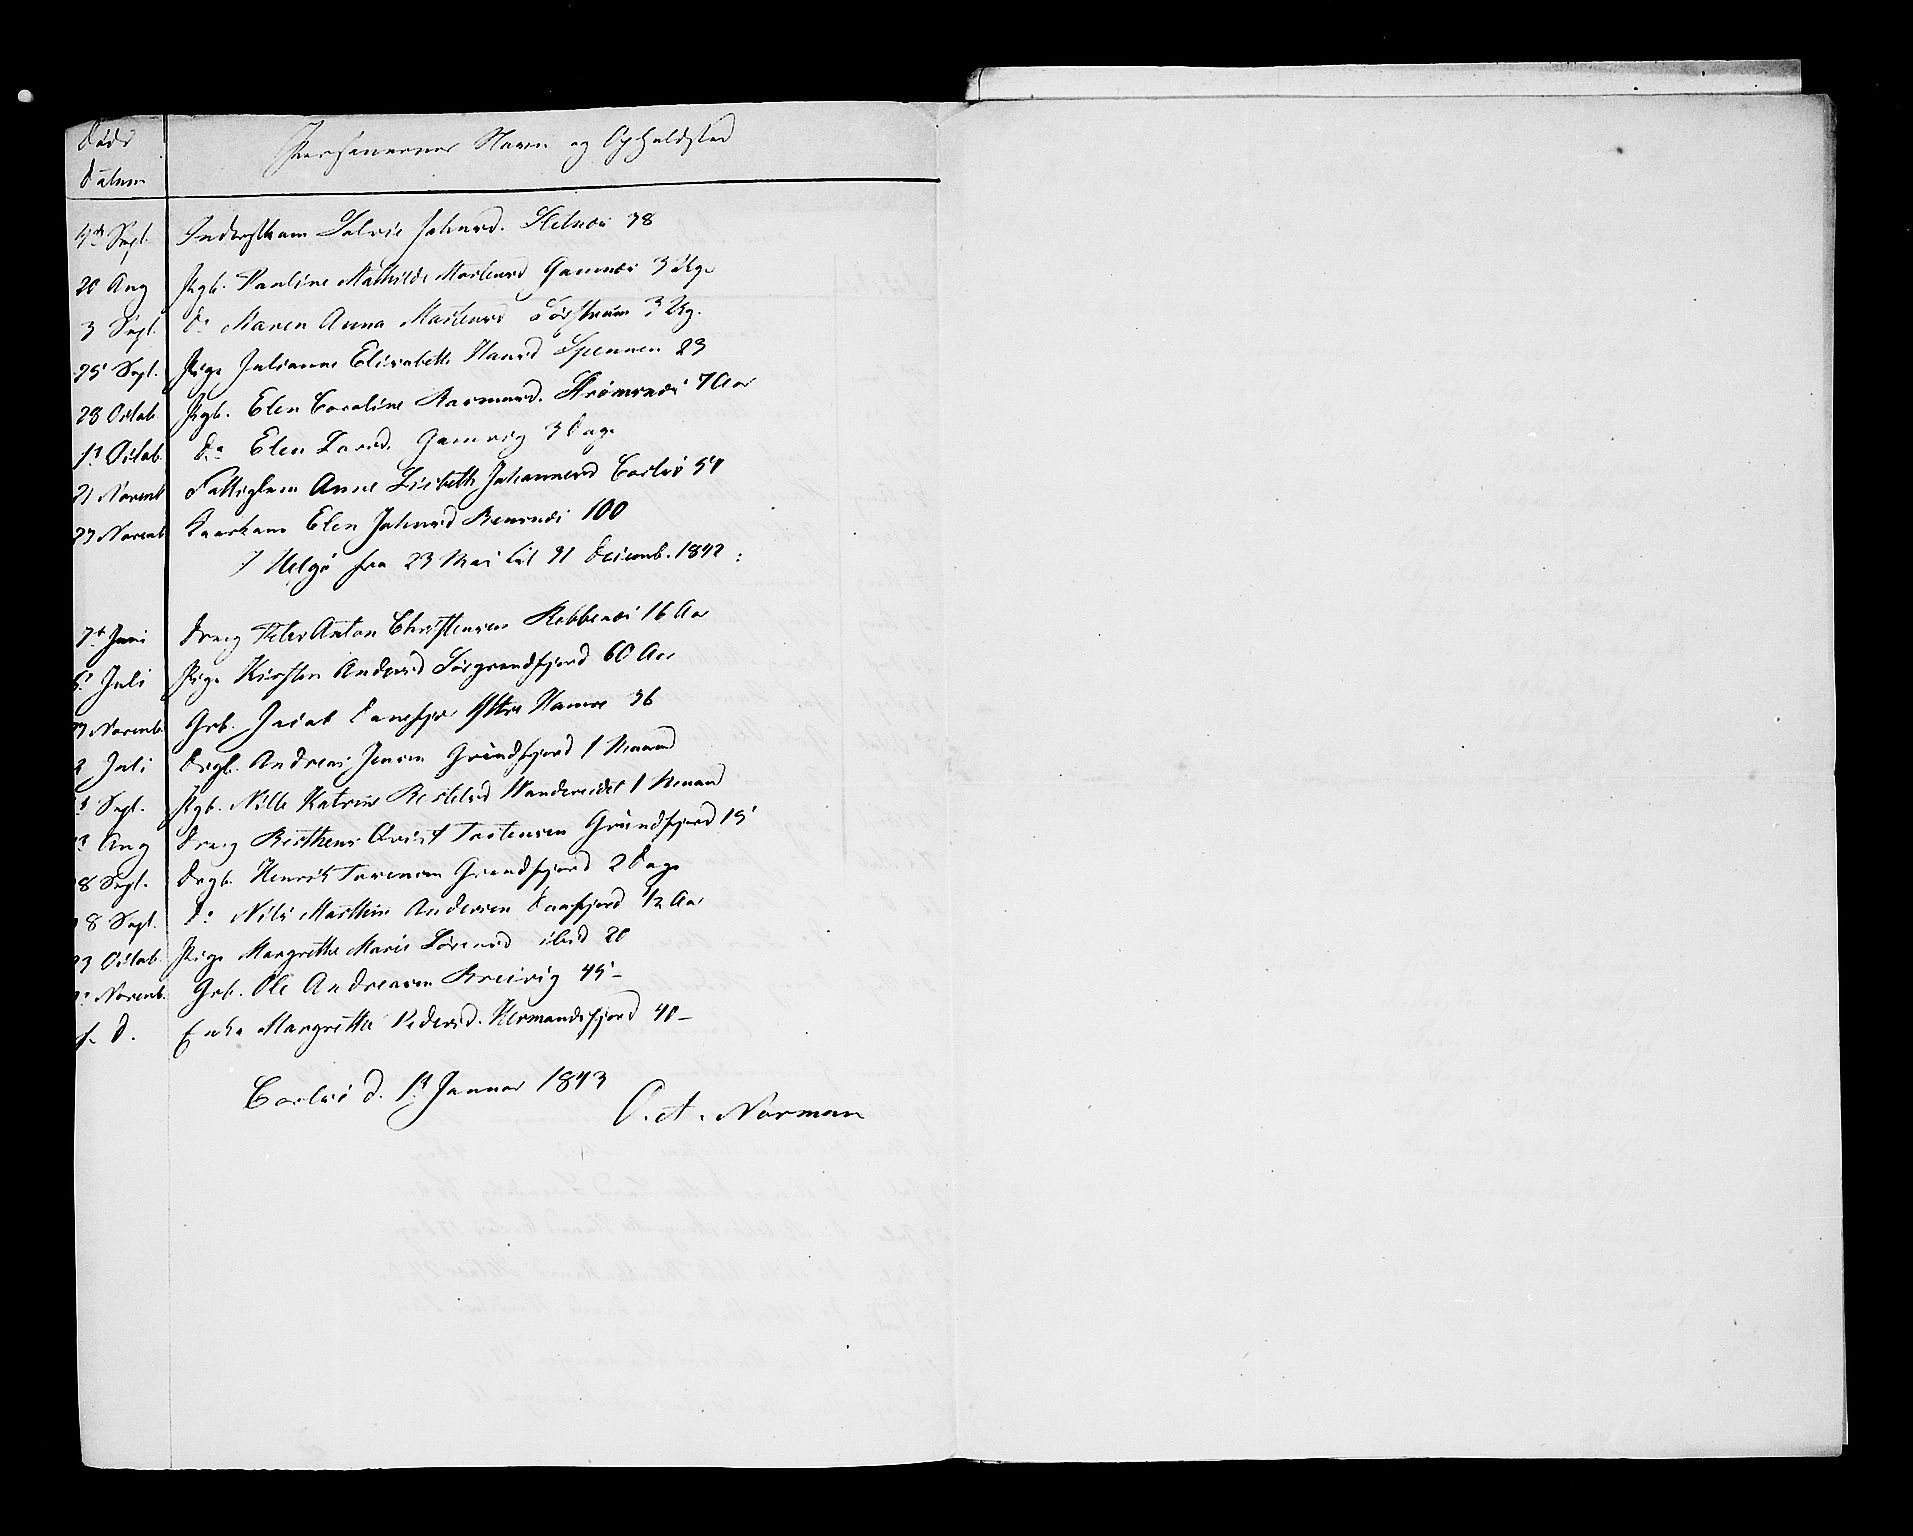 Døds Datum Personernes Navn og Opholdsted
Sept. Inderstkone Johnsd. 38
20 Aug Pgb. Pauline Mathilde Mortensd Gamnæs 3 Ug.
3 Sept. do Maren Anna Mortensd Sørstrøm 3 Ug.
25 Sept. Pige Julianna Elisabeth Hansd Spennen 23
28 Octob Pgb. Elen Caroline Rasmusd. 7 Aar
1st Octob. do Elen Larsd. Jamvig 3 Dage
21 Novemb Fattiglem Anne Lisbeth Johannesd Carlsø 54
27 Novemb Kaarkone Elen Johnsd Reinsnæs 100
I Helgø fra 23 Mai til 31 Decemb. 1842:
7de Juni Dreng Peder Anton Christensen Rebbenæs 16 Aar
Juli Pige Kirsten Andersd Sørgrundfjord 60 Aar
Novemb. Grb. Jacob Danefjær Yttre Hamre 36
Juli Drgb. Andreas Jensen Grundfjord 1 Maaned
Sept. Pgb. Nille Katrine Wandereidet 1 Maaned
Aug Dreng Qvist Torstensen Grundfjord 15
8 Sept. Drgb. Henrik Grundfjord 2 Dage
8 Sept. do Nils Marthin Andersen Danfjord 1/2 Aar
23 Octob. Pige Margrethe Marie Sørensd ibid 20
Novemb. Grb. Ole Andreasen Breivig 45 –
s. D. Enke Margrethe Pedersd. Hermandsfjord 40 –
Carlsø d. 1st Januar 1843
O. A. Norman